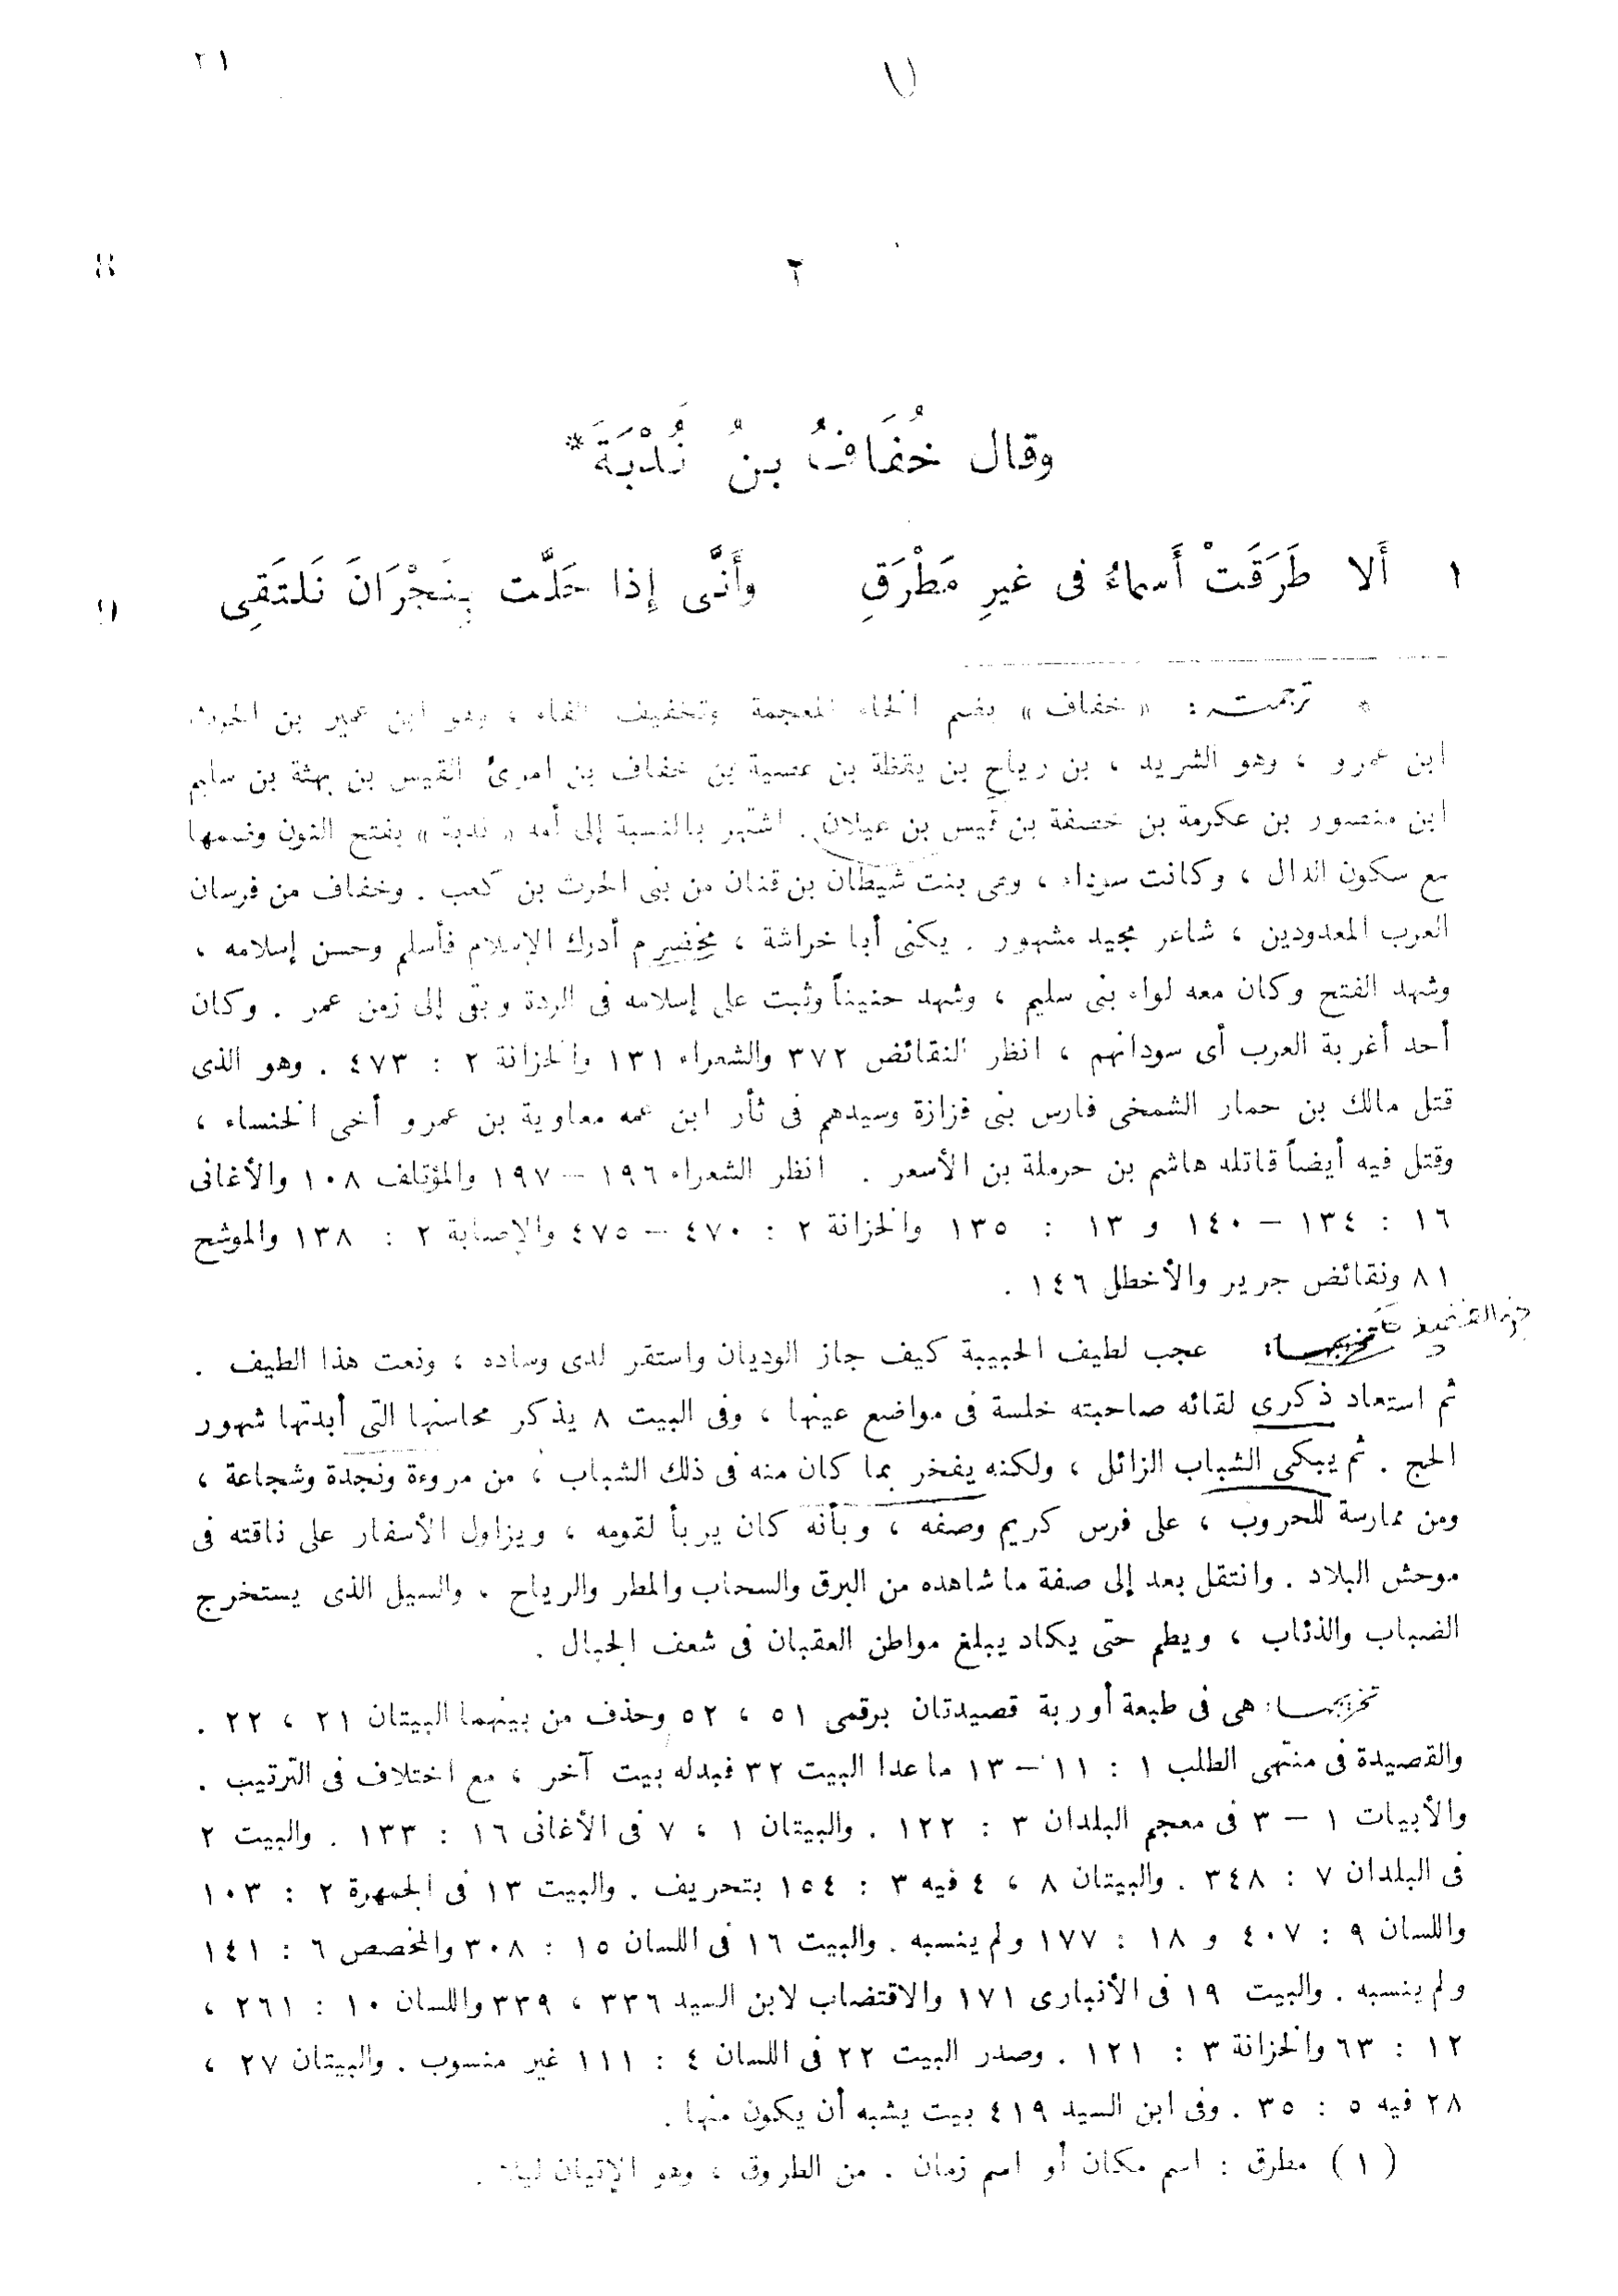 ٢١
٢
وقال خُفَافُ بنُ نُدْبَةَ*
١ ألا طَرَقَتْ أَسماءُ فى غيرِ مَطْرَقِ وأَنَّى إذا حَلَّت بِنَجْرَانَ نَلتَقِى
* ترجمته: « خفاف » بضم الخاء المعجمة وتخفيف الفاء ، وهو ابن عمير بن الحرث
ابن عمرو ، وهو الشريد ، بن رياح بن يقظة بن عصية بن خفاف بن امرئ القيس بن بهثة بن سليم
ابن منصور بن عكرمة بن خصفة بن قيس بن عيلان . اشتهر بالنسبة إلى أمه « ندبة » بفتح النون وضمها
مع سكون الدال ، وكانت سوداء ، وهى بنت شيطان بن قنان من بنى الحرث بن كعب . وخفاف من فرسان
العرب المعدودين ، شاعر مجيد مشهور . يكنى أبا خراشة ، مخضرم أدرك الإسلام فأسلم وحسن إسلامه ،
وشهد الفتح وكان معه لواء بنى سليم ، وشهد حنيناً وثبت على إسلامه فى الردة وبقى إلى زمن عمر . وكان
أحد أغربة العرب أى سودانهم ، انظر النقائض ٣٧٢ والشعراء ١٣١ والخزانة ٢ : ٤٧٣ . وهو الذى
قتل مالك بن حمار الشمخى فارس بنى فزازة وسيدهم فى ثأر ابن عمه معاوية بن عمرو أخى الخنساء ،
وقتل فيه أيضاً قاتله هاشم بن حرملة بن الأسعر . انظر الشعراء ١٩٦ – ١٩٧ والمؤتلف ١٠٨ والأغانى
١٦ : ١٣٤ – ١٤٠ و ١٣ : ١٣٥ والخزانة ٢ : ٤٧٠ – ٤٧٥ والإصابة ٢ : ١٣٨ والموشح
٨١ ونقائض جرير والأخطل ١٤٦ .
عجب لطيف الحبيبة كيف جاز الوديان واستقر لدى وساده ، ونعت هذا الطيف .
ثم استعاد ذكرى لقائه صاحبته خلسة فى مواضع عينها ، وفى البيت ٨ يذكر محاسنها التى أبدتها شهور
الحج . ثم يبكى الشباب الزائل ، ولكنه يفخر بما كان منه فى ذلك الشباب ، من مروءة ونجدة وشجاعة ،
ومن ممارسة للحروب ، على فرس كريم وصفه ، وبأنه كان يربأ لقومه ، ويزاول الأسفار على ناقته فى
موحش البلاد . وانتقل بعد إلى صفة ما شاهده من البرق والسحاب والمطر والرياح ، والسيل الذى يستخرج
الضباب والذئاب ، ويطم حتى يكاد يبلغ مواطن العقبان فى شعف الجبال .
تخريجها: هى فى طبعة أوربة قصيدتان برقمى ٥١ ، ٥٢ وحذف من بينهما البيتان ٢١ ، ٢٢ .
والقصيدة فى منتهى الطلب ١ : ١١ – ١٣ ما عدا البيت ٣٢ فبدله بيت آخر ، مع اختلاف فى الترتيب .
والأبيات ١ – ٣ فى معجم البلدان ٣ : ١٢٢ . والبيتان ١ ، ٧ فى الأغانى ١٦ : ١٣٣ . والبيت ٢
فى البلدان ٧ : ٣٤٨ . والبيتان ٨ ، ٤ فيه ٣ : ١٥٤ بتحريف . والبيت ١٣ فى الجمهرة ٢ : ١٠٣
واللسان ٩ : ٤٠٧ و ١٨ : ١٧٧ ولم ينسبه . والبيت ١٦ فى اللسان ١٥ : ٣٠٨ والمخصص ٦ : ١٤١
ولم ينسبه . والبيت ١٩ فى الأنبارى ١٧١ والاقتضاب لابن السيد ٣٣٦ ، ٣٣٩ واللسان ١٠ : ٢٦١ ،
١٢ : ٦٣ والخزانة ٣ : ١٢١ . وصدر البيت ٢٢ فى اللسان ٤ : ١١١ غير منسوب . والبيتان ٢٧ ،
٢٨ فيه ٥ : ٣٥ . وفى ابن السيد ٤١٩ بيت يشبه أن يكون منها .
( ١ ) مطرق : اسم مكان أو اسم زمان . من الطروق ، وهو الإتيان ليلا .